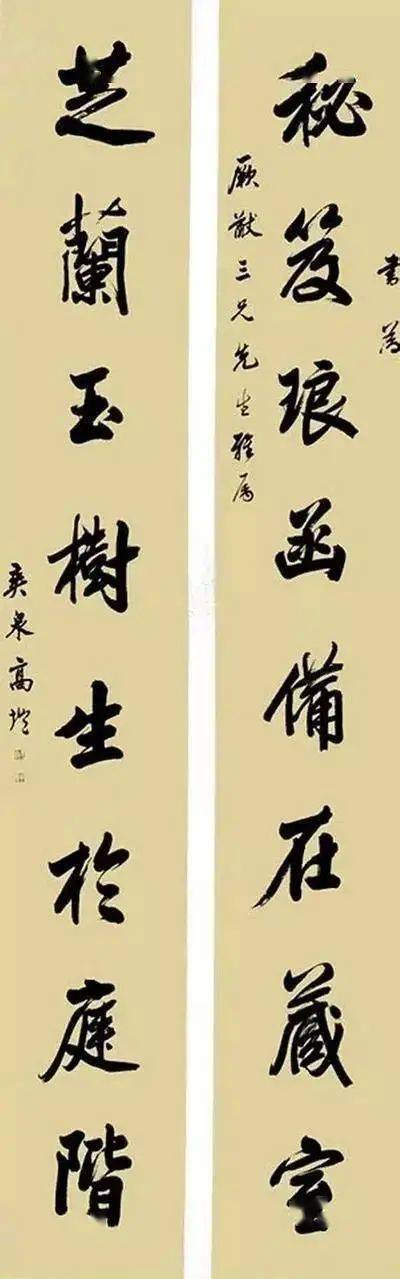 秘笈琅函備在藏室
書為
厥猷三兄先生雅属
芝蘭玉樹生於庭階
爽泉高塏